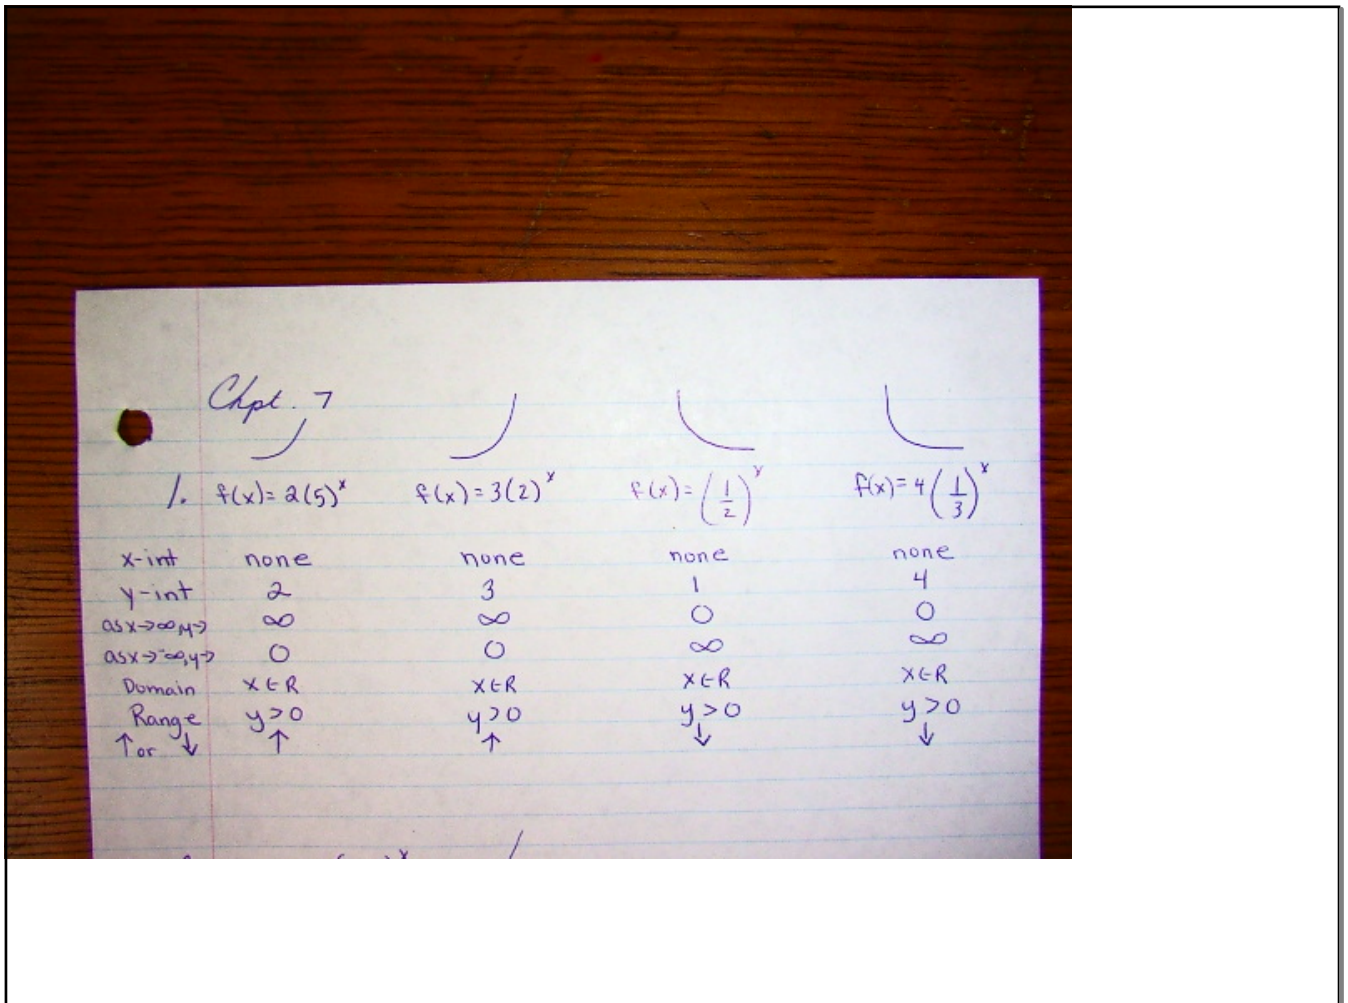 Chpt. 7
1. f(x)=2(5)^x f(x)=3(2)^x f(x)=(1/2)^x f(x)=4(1/3)^x
x-int none none none none
y-int 2 3 1 4
as x→∞, y→ ∞ ∞ 0 0
as x→-∞, y→ 0 0 ∞ ∞
Domain x∈R x∈R x∈R x∈R
Range y>0 y>0 y>0 y>0
↑ or ↓ ↑ ↑ ↓ ↓